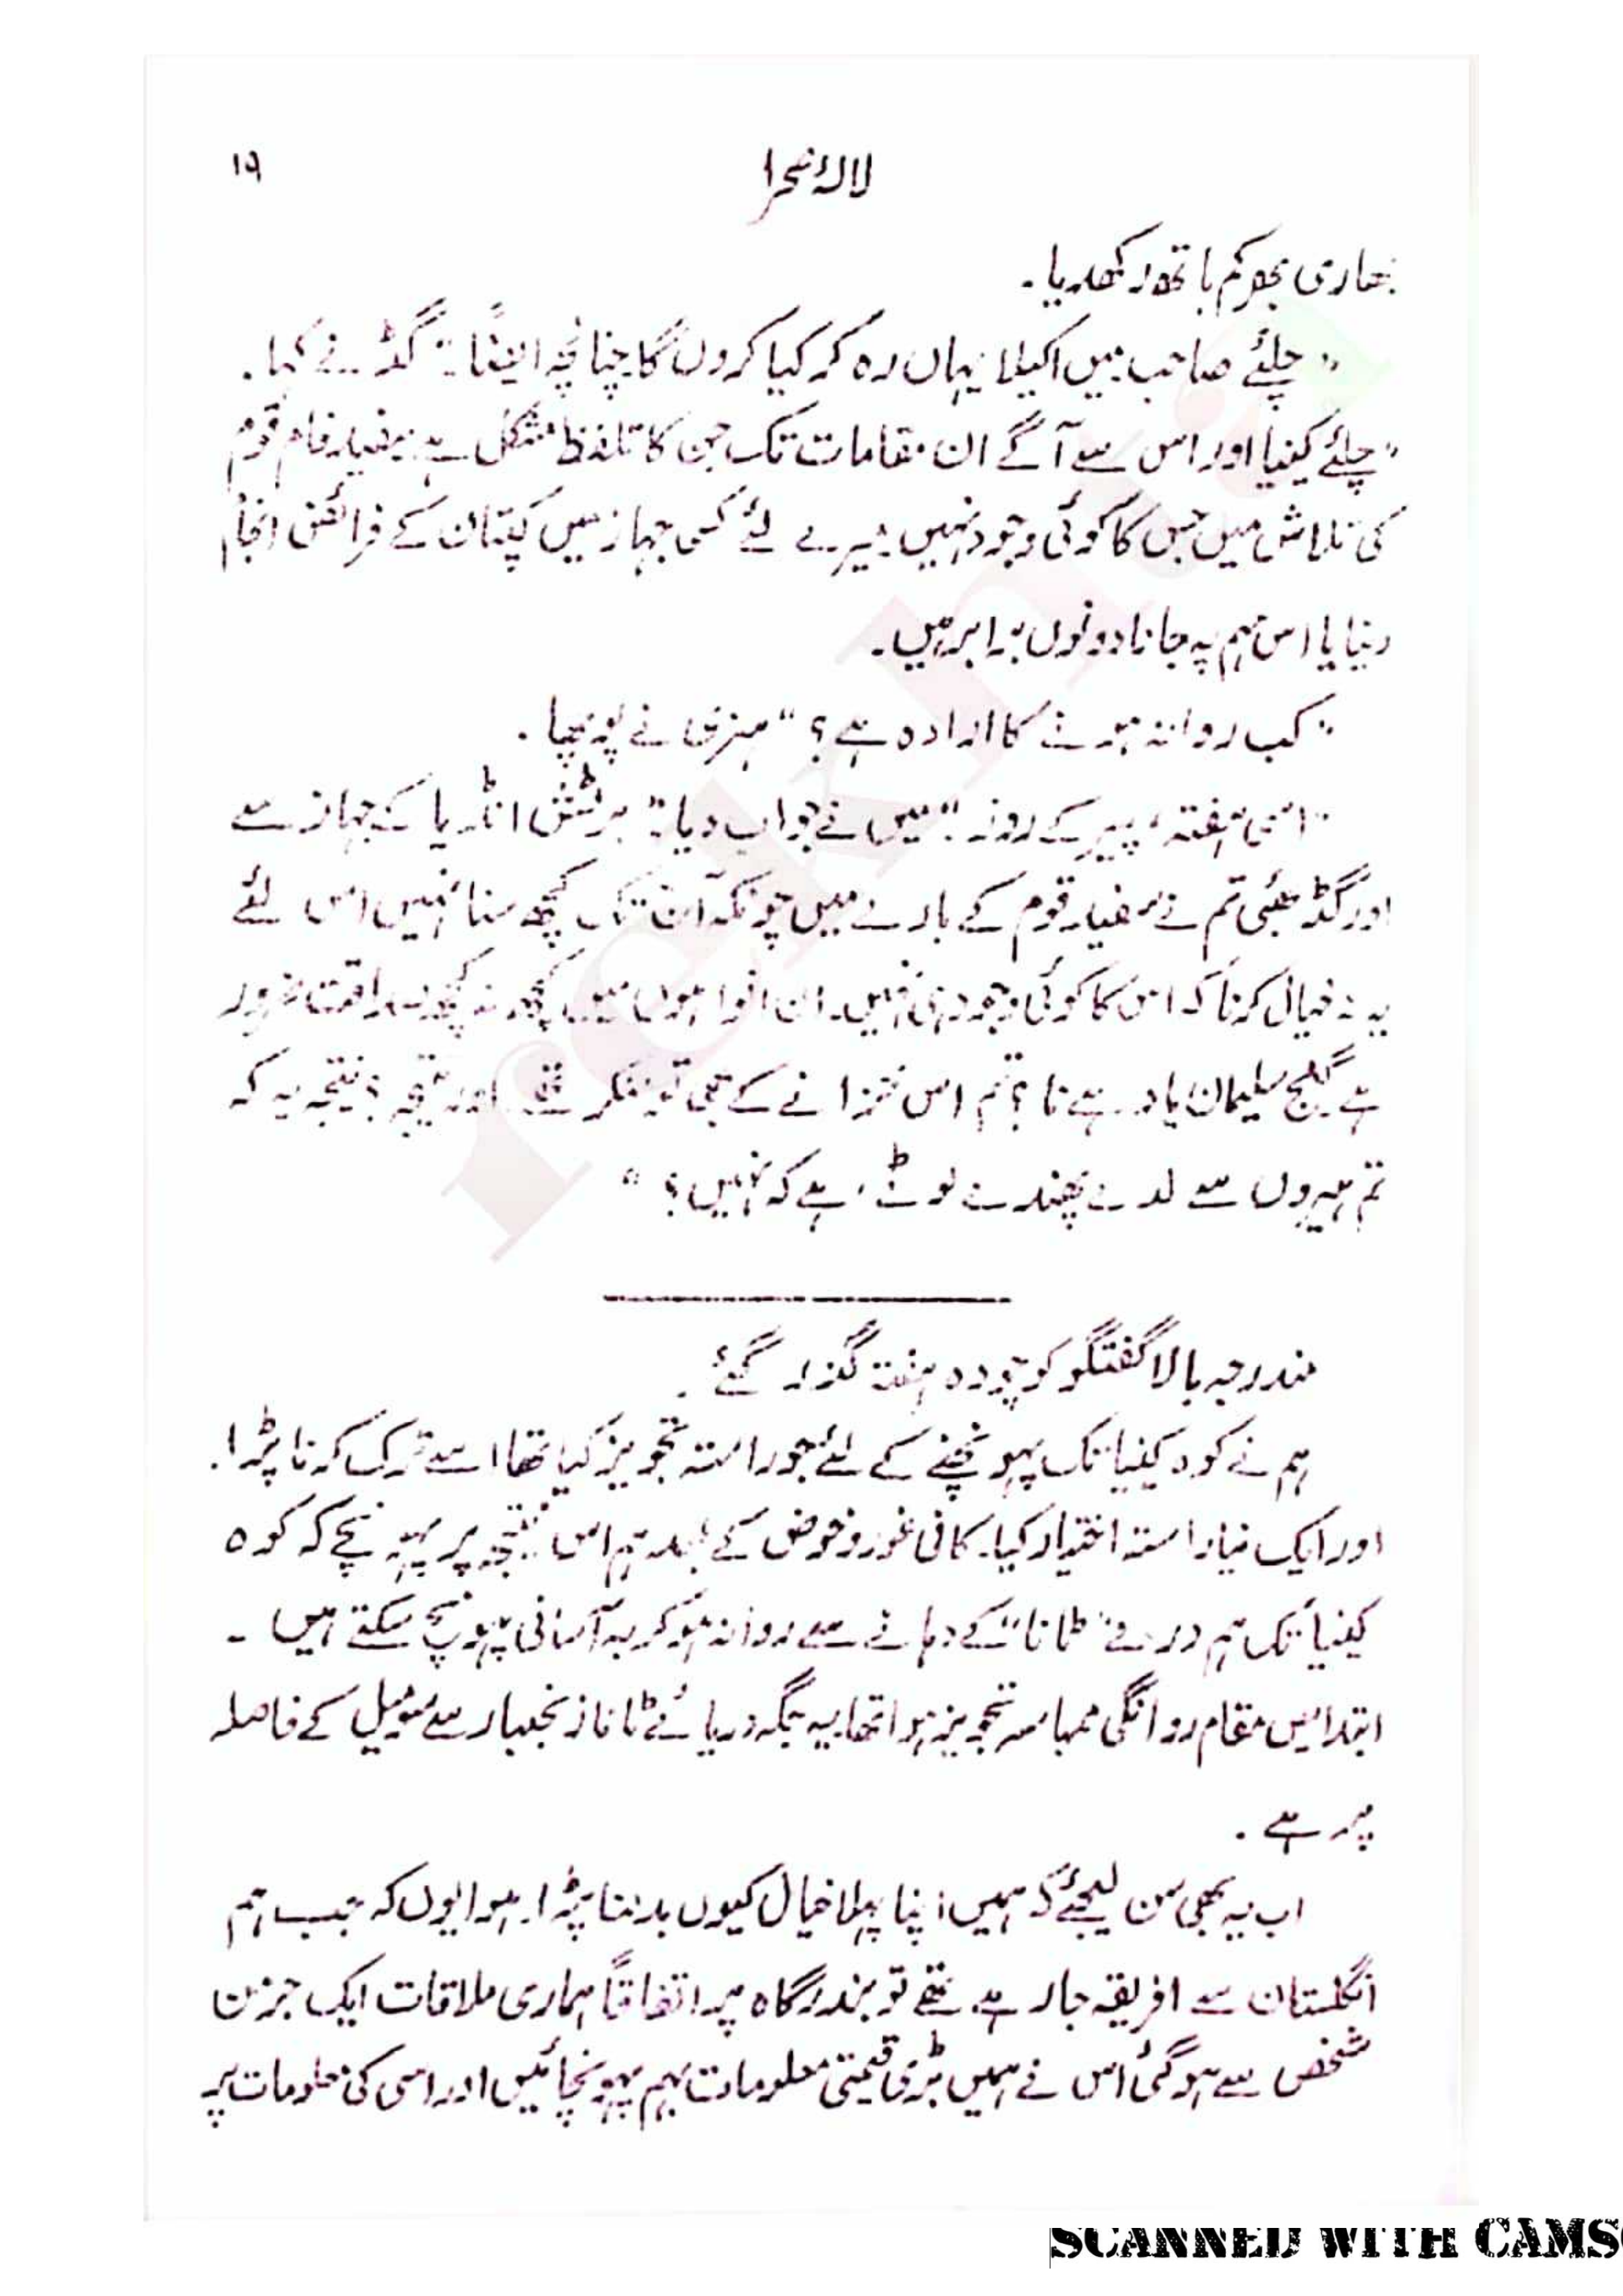 لالۂ صحرا ۱۹
بھاری بھرکم ہاتھ رکھدیا۔
"چلئے صاحب میں اکیلا یہاں رہ کر کیا کروں گا چنانچہ ایضاً۔" گڈ نے کہا۔
"چلئے کینیا اور اس سے آگے ان مقامات تک جن کا تلفظ مشکل ہے سفید فام قوم
کی تلاش میں جس کا کوئی وجود نہیں۔ میرے لئے کسی جہاز میں کپتان کے فرائض انجام
دینا یا اس مہم پہ جانا دونوں برابر ہیں۔
"کب روانہ ہونے کا ارادہ ہے؟" ہنری نے پوچھا۔
"اسی ہفتہ، پیر کے روز۔" میں نے جواب دیا۔" برٹش انڈیا کے جہاز سے
اور گڈ بھئی تم نے سفید قوم کے بارے میں چونکہ آج تک کچھ سنا نہیں اس لئے
یہ نہ خیال کرنا کہ اس کا کوئی وجود ہی نہیں۔ ان افواہوں میں کچھ نہ کچھ صداقت ضرور
ہے گنج سلیمان یاد ہے نا؟ تم اس خزانے کے بھی تو منکر تھے۔ اور نتیجہ؟ نتیجہ یہ کہ
تم ہیروں سے لدے پھندے لوٹے، ہے کہ نہیں؟"
مندرجہ بالا گفتگو کو چودہ ہفتے گزر گئے۔
ہم نے کوہ کینیا تک پہونچنے کے لئے جو راستہ تجویز کیا تھا اسے ترک کرنا پڑا۔
اور ایک نیا راستہ اختیار کیا۔ کافی غور و خوض کے بعد ہم اس نتیجہ پر پہونچے کہ کوہ
کینیا تک ہم دریائے "ٹانا" کے دہانے سے روانہ ہو کر بہ آسانی پہونچ سکتے ہیں۔
ابتدا میں مقام روانگی ممباسہ تجویز ہوا تھا یہ جگہ دریائے ٹانا زنجبار سے سو میل کے فاصلہ
پر ہے۔
اب یہ بھی سن لیجئے کہ ہمیں اپنا پہلا خیال کیوں بدلنا پڑا۔ ہوا یوں کہ جب ہم
انگلستان سے افریقہ جا رہے تھے تو بندرگاہ پر اتفاقاً ہماری ملاقات ایک جرمن
شخص سے ہو گئی اس نے ہمیں بڑی قیمتی معلومات بہم پہونچائیں اور اسی کی معلومات پر
rekhta
SCANNED WITH CAMS